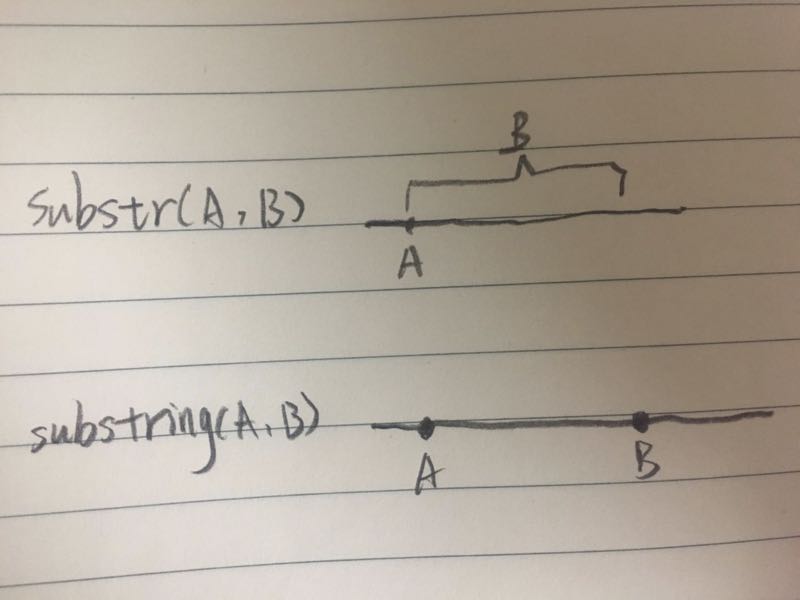 B
substr(A, B)
A
substring(A, B)
A B